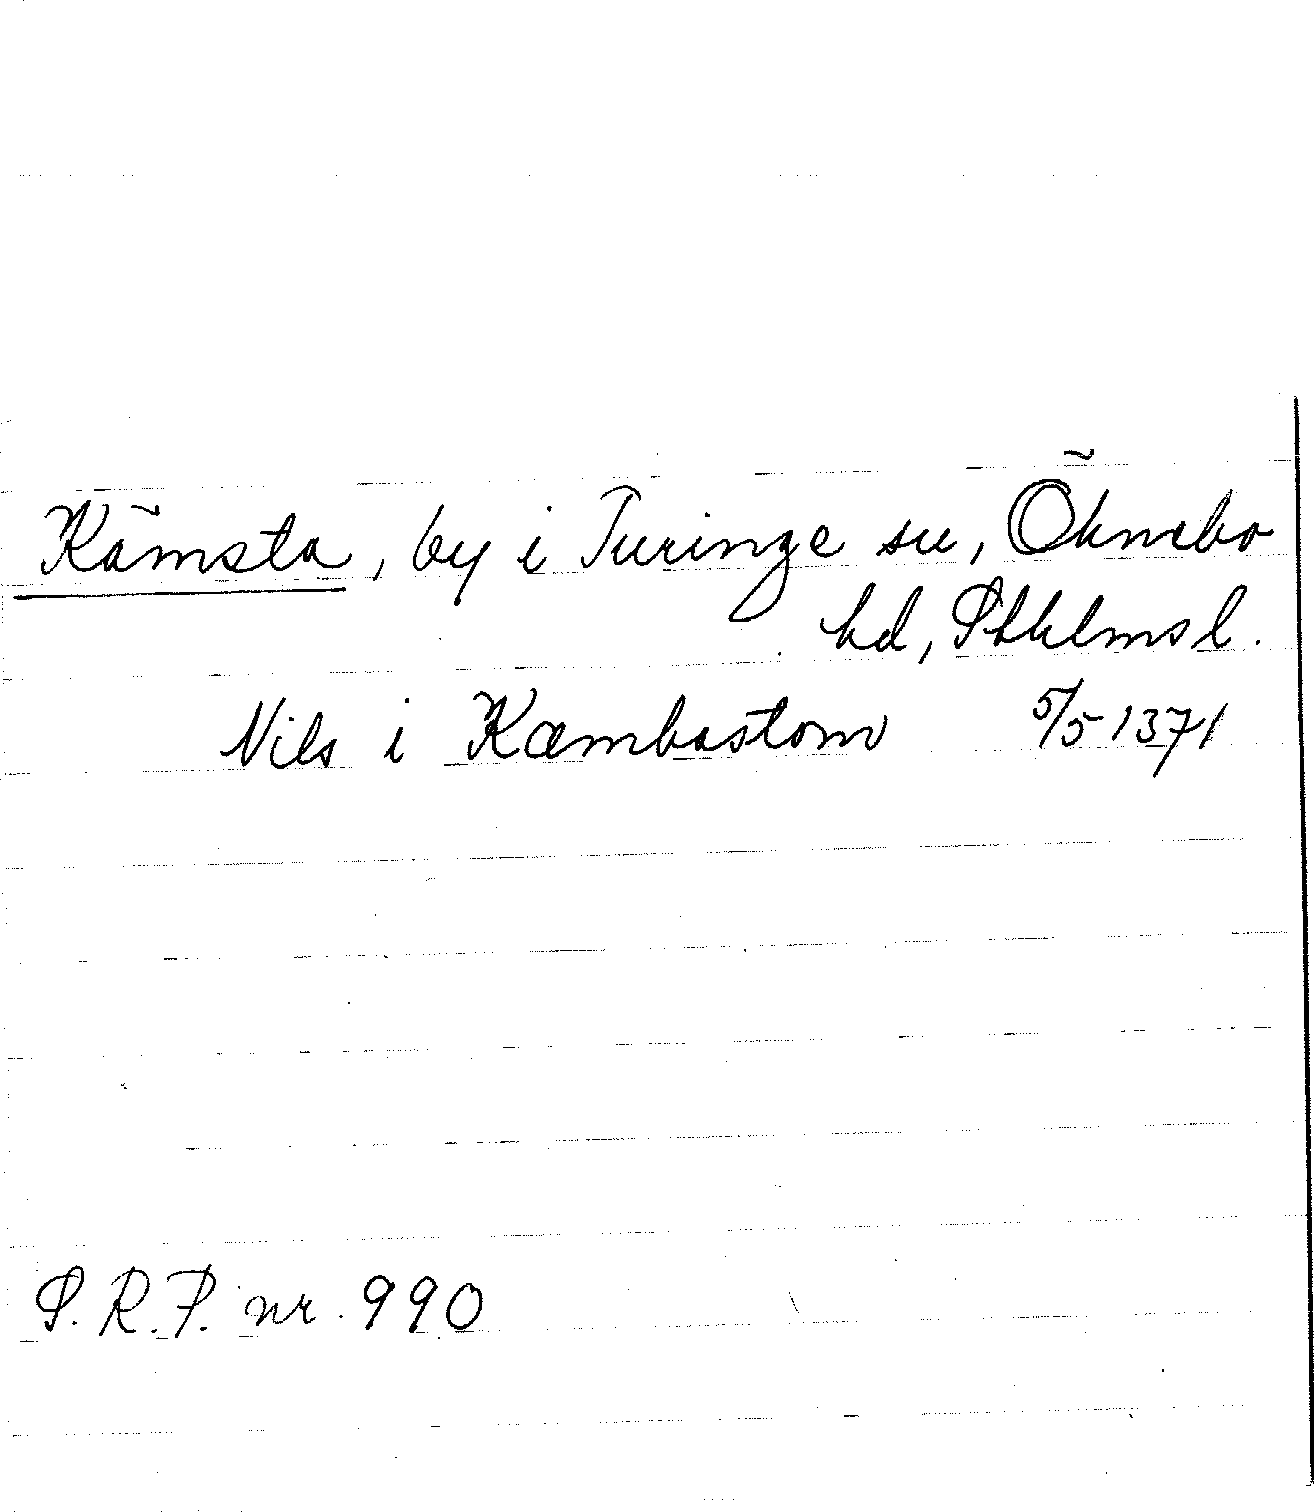 Kämsta, by i Turinge sn, Öknebo
hd, Sthlmsl.
Nils i Kæmbastom 5/5 1371
S.R.P. nr. 990